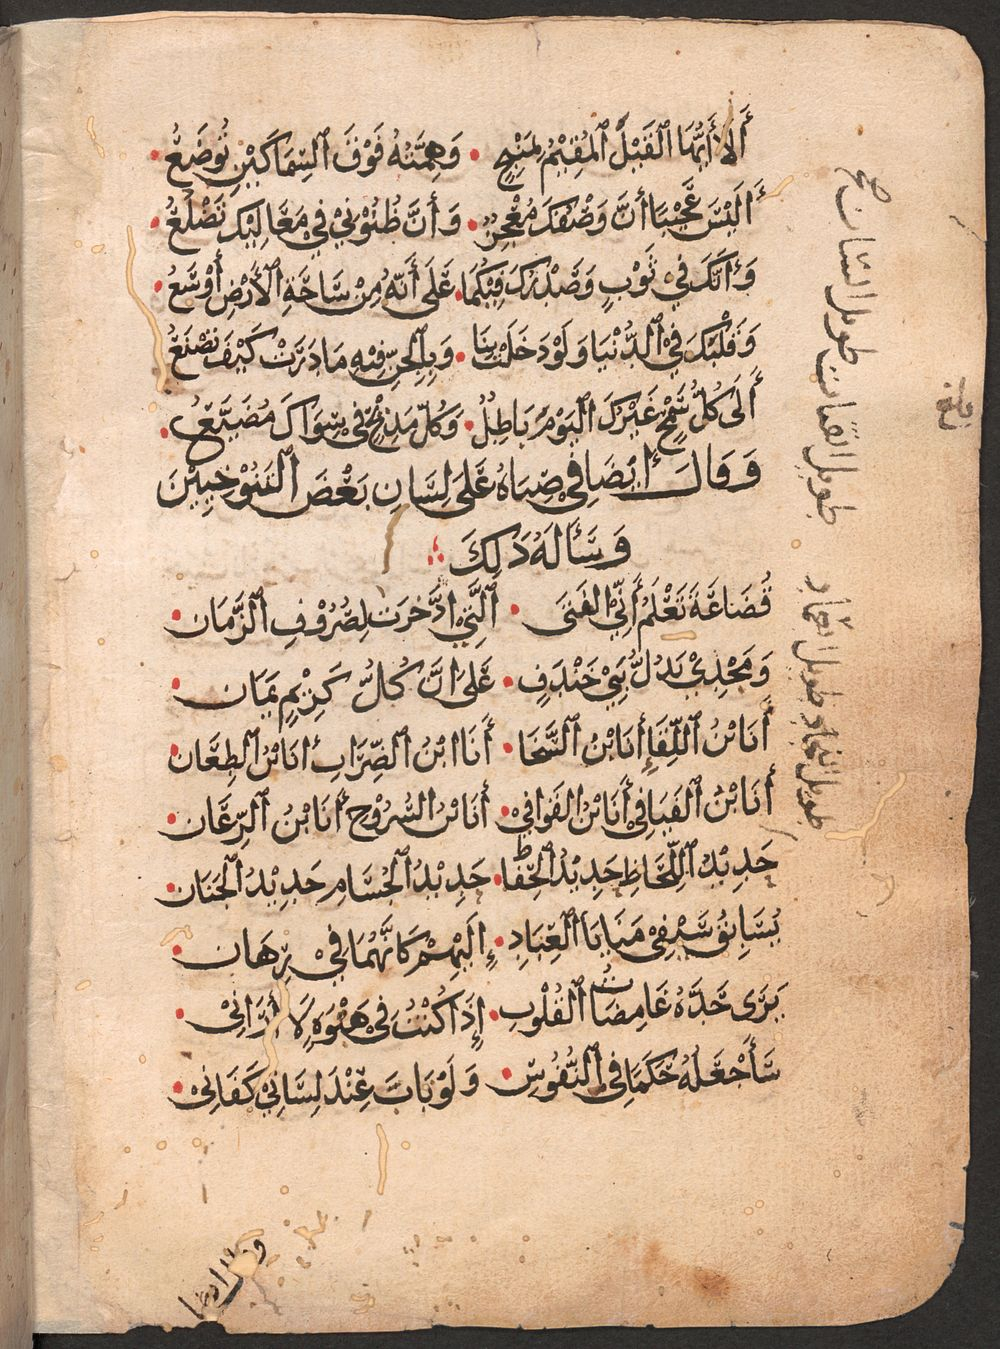 أَلَا أَيُّهَا ٱلْقَيْلُ ٱلْمُقِيمُ بِمَنْبِجٍ • وَهِمَّتُهُ فَوْقَ ٱلسِّمَاكَيْنِ تُوضَعُ •
أَلَيْسَ عَجِيبًا أَنَّ وَصْفَكَ مُعْجِزٌ • وَأَنَّ ظُنُونِي فِي مَعَالِيكَ تَضْلَعُ •
وَأَنَّكَ فِي ثَوْبٍ وَصَدْرُكَ فِيكُمَا • عَلَى أَنَّهُ مِنْ سَاحَةِ ٱلْأَرْضِ أَوْسَعُ •
وَقَلْبُكَ فِي ٱلدُّنْيَا وَلَوْ دَخَلَتْ بِنَا • وَبِٱلْجِنِّ فِيهِ مَا دَرَتْ كَيْفَ تَصْنَعُ
أَلَى كُلُّ سَمْحٍ غَيْرَكَ ٱلْيَوْمَ بَاطِلٌ • وَكُلُّ مَدِيحٍ فِي سِوَاكَ مُضَيَّعُ •
وَقَالَ أَيْضًا فِي صِبَاهُ عَلَى لِسَانِ بَعْضِ ٱلتَّنُوخِيِّينَ
وَسَأَلَهُ ذَلِكَ
قُضَاعَةُ تَعْلَمُ أَنِّي ٱلْفَتَى • ٱلَّتِي ادَّخَرَتْ لِصُرُوفِ ٱلزَّمَانِ •
وَمَجْدِي يَدُلُّ بَنِي خِنْدِفٍ • عَلَى أَنَّ كُلَّ كَرِيمٍ يَمَانِ •
أَنَا بْنُ ٱللِّقَاءِ أَنَا بْنُ ٱلسَّخَا • أَنَا ابْنُ ٱلضِّرَابِ أَنَا بْنُ ٱلطِّعَانِ •
أَنَا بْنُ ٱلْفَيَافِي أَنَا بْنُ ٱلْقَوَافِي • أَنَا بْنُ ٱلسُّرُوجِ أَنَا بْنُ ٱلرِّعَانِ •
حَدِيدُ ٱللِّحَاظِ حَدِيدُ ٱلْحِفَاظِ • حَدِيدُ ٱلْحُسَامِ حَدِيدُ ٱلْجَنَانِ •
يُسَابِقُ سَيْفِي مَنَايَا ٱلْعِبَادِ • إِلَيْهِمْ كَأَنَّهُمَا فِي رِهَانِ •
يَرَى حَدُّهُ غَامِضَاتِ ٱلْقُلُوبِ • إِذَا كُنْتُ فِي هَبْوَةٍ لَا أَرَانِي •
سَأَجْعَلُهُ حَكَمًا فِي ٱلنُّفُوسِ • وَلَوْ بَاتَ عِنْدَ لِسَانِي كَفَانِي •
وقال ايضا
طويل القناة طويل السنان
طويل النجاد طويل العماد